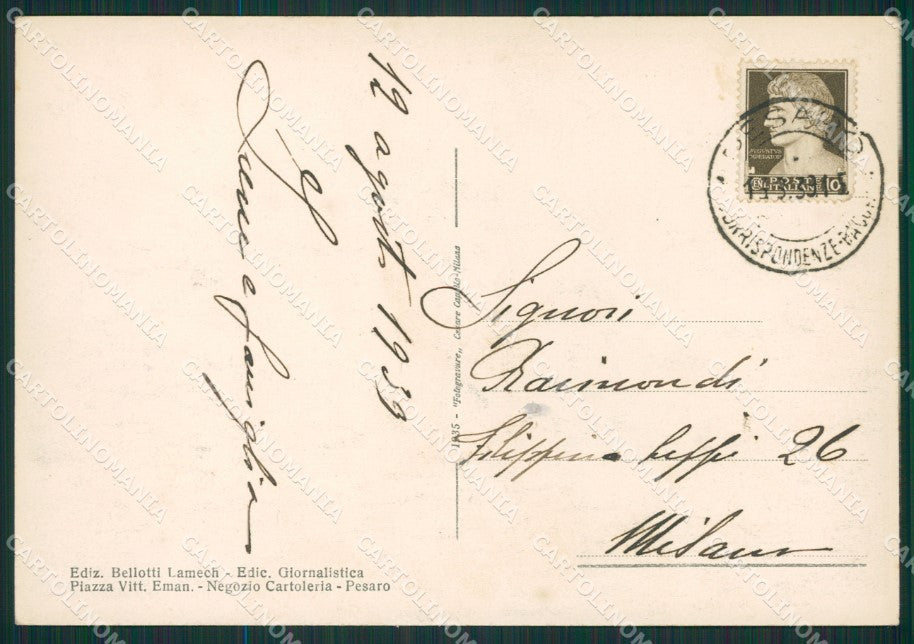 12 agosto 1939
e famiglia
PESARO
CORRISPONDENZE-PACCHI
AUGUSTUS
IMPERATOR
POSTE
ITALIANE
10
1935 - "Fotogravure„ Cesare Capello-Milano
Signori
Raimondi
Filippino Lippi 26
Milano
Ediz. Bellotti Lamech - Edic. Giornalistica
Piazza Vitt. Eman. - Negozio Cartoleria - Pesaro
CARTOLINOMANIA